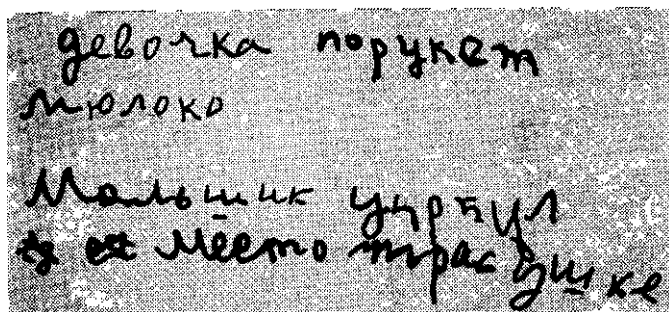 девочка порукет
мюлоко
Мальшик уцрбул
место трасдушке